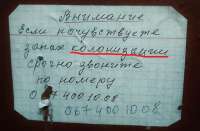 Внимание
Если почувствуете
запах колонизации
срочно звоните
по номеру
0 7 400 10 08
067 400 10 08